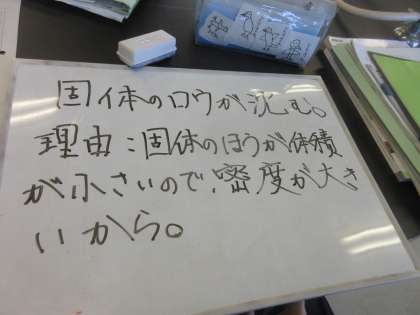 固体のロウが沈む。
理由:固体のほうが体積
が小さいので、密度が大き
いから。